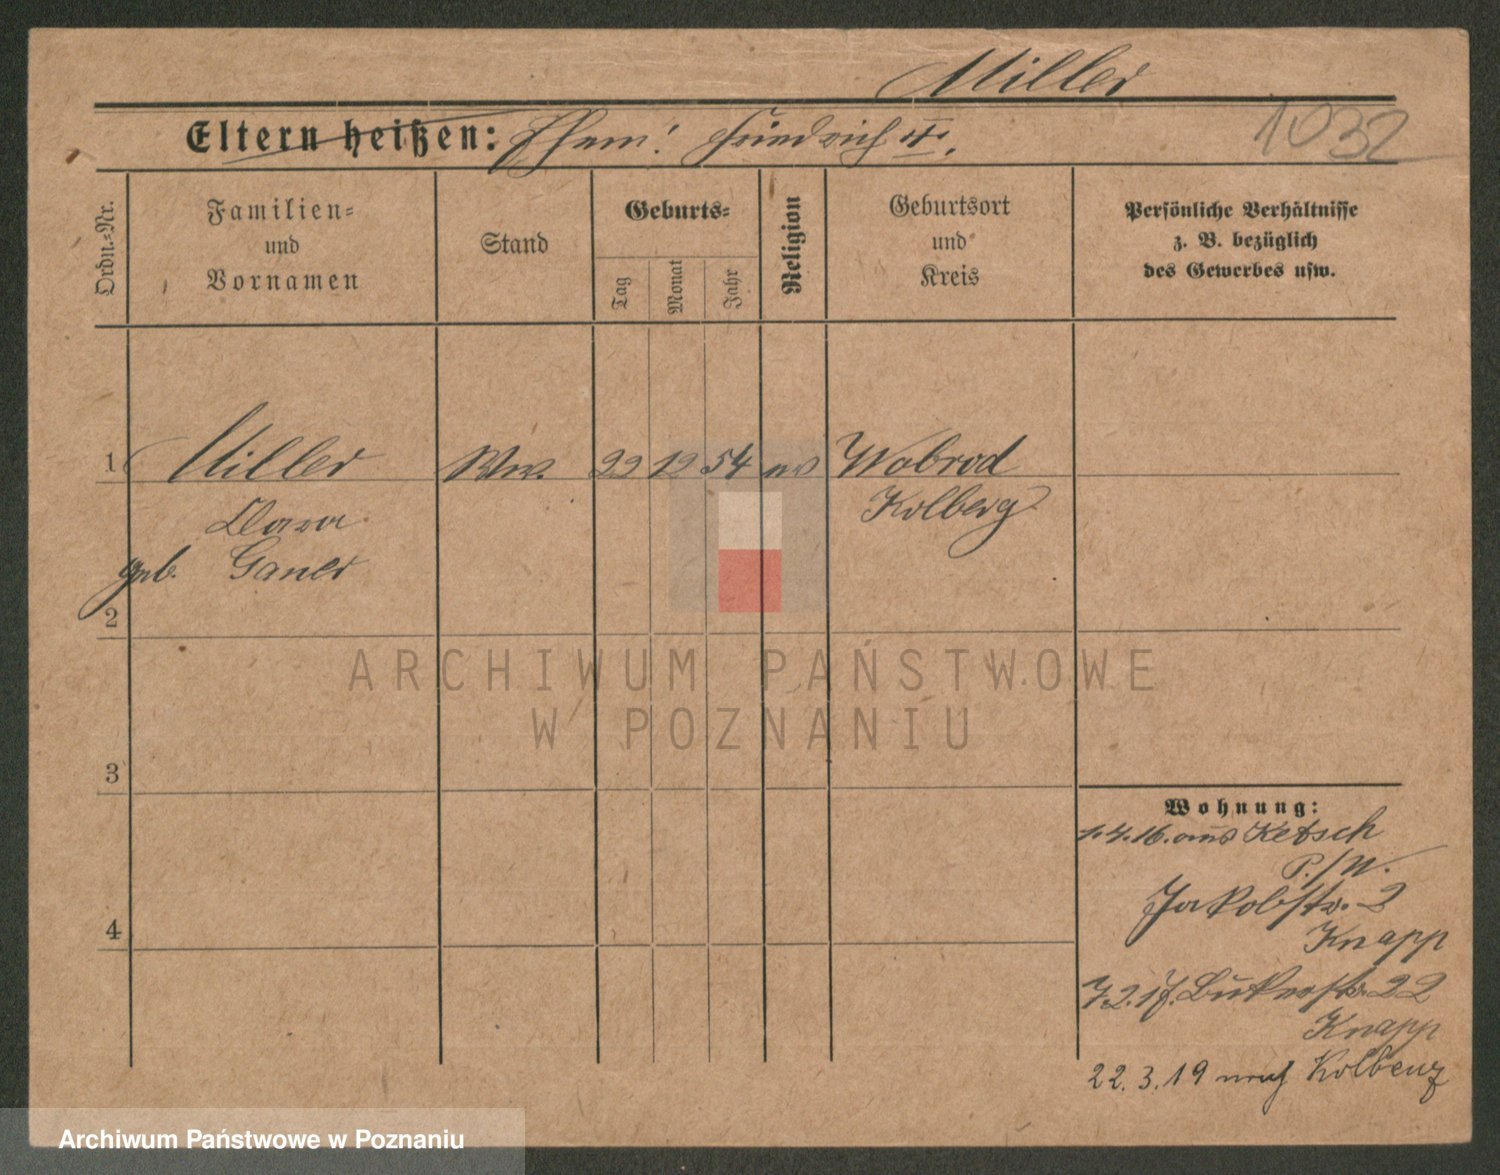 Miller
Eltern heißen: Ehem. Friedrich †.
1032
Ordn.-Nr.
Familien-
und
Vornamen
Stand
Geburts-
Tag
Monat
Jahr
Religion
Geburtsort
und
Kreis
Persönliche Verhältnisse
z. B. bezüglich
des Gewerbes usw.
1 Miller Ww. 22 12 54 Wobrod
Clara Kolberg
geb.
2
3
4
Wohnung:
1.4.16. aus Ketsch
P./W.
Jakobstr. 2
Knapp
7.2.17. Bukerstr. 22
Knapp
22.3.19 nach
ARCHIWUM PAŃSTWOWE
W POZNANIU
Archiwum Państwowe w Poznaniu